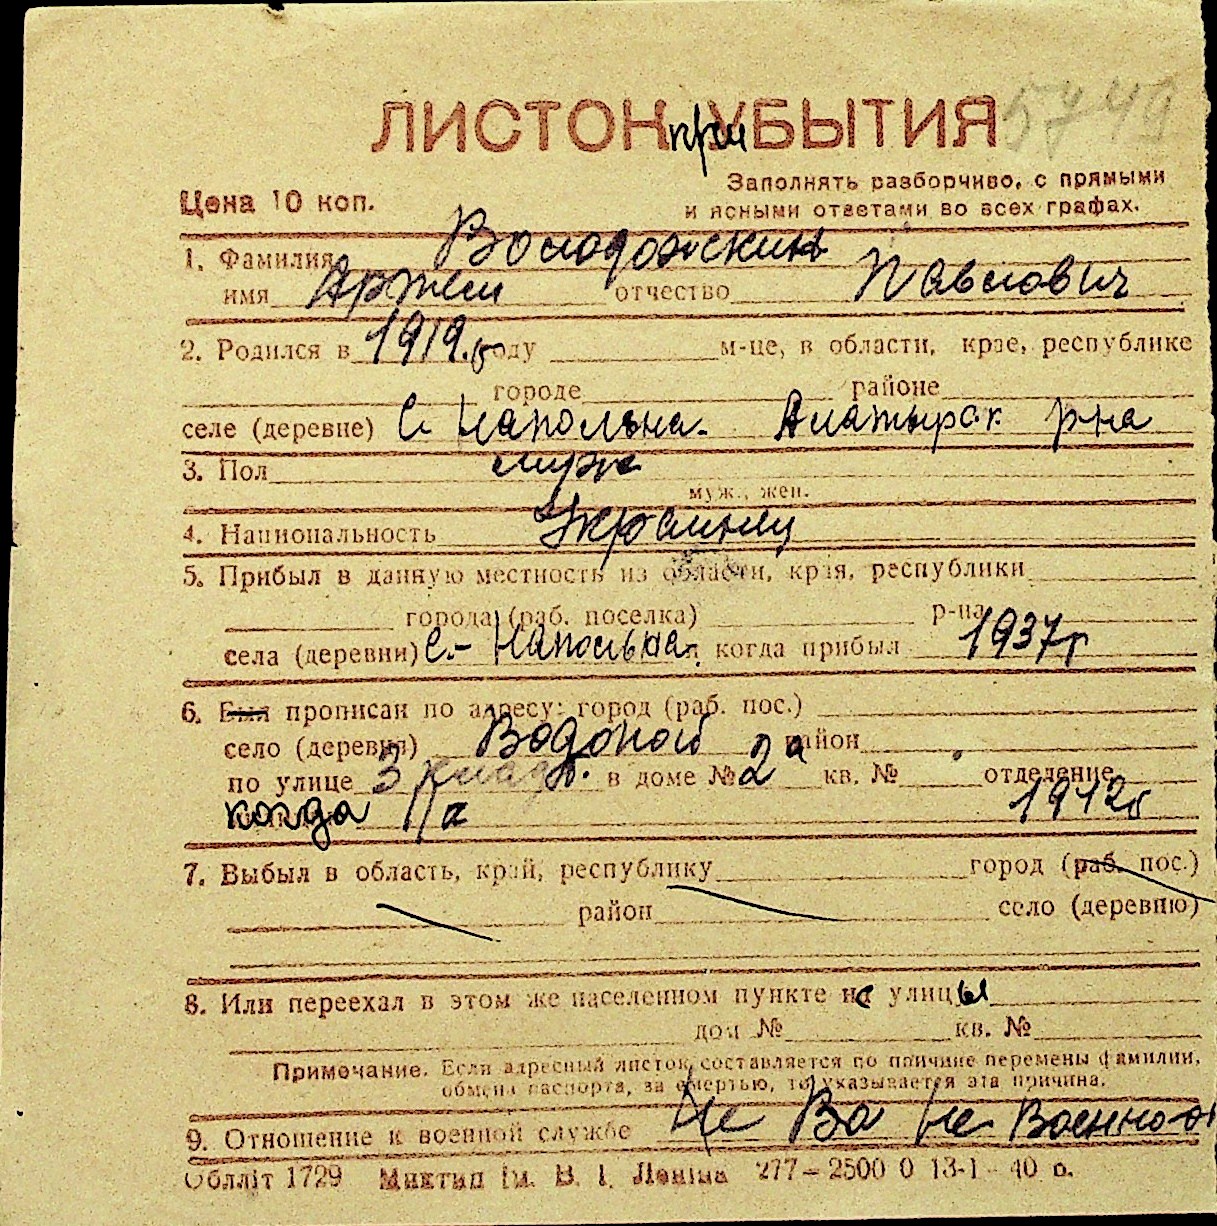 ЛИСТОК при УБЫТИЯ 5749
Цена 10 коп.
Заполнять разборчиво, с прямыми
и ясными ответами во всех графах.
1. Фамилия Володожскин
имя Артем отчество Павлович
2. Родился в 1919 г. году м-це, в области, крае, республике
городе районе
селе (деревне) С. Напольна. Алатырск р-на
3. Пол муж
муж., жен.
4. Национальность Украинец
5. Прибыл в данную местность из области, края, республики
города (раб. поселка) р-на
села (деревни) С.- Напольная когда прибыл 1937 г
6. Был прописан по адресу: город (раб. пос.)
село (деревня) Водопой район
по улице 3 в доме № 2а кв. № отделение
когда 1942г
7. Выбыл в область, край, республику город (раб. пос.)
район село (деревню)
8. Или переехал в этом же населенном пункте не улицы
дом № кв. №
Примечание. Если адресный листок составляется по причине перемены фамилии,
обмена паспорта, за смертью, то указывается эта причина.
9. Отношение к военной службе Не Во Не Военнооб
Облліт 1729 Миктип ім. В. І. Леніна 277–2500 0 13-1-40 р.